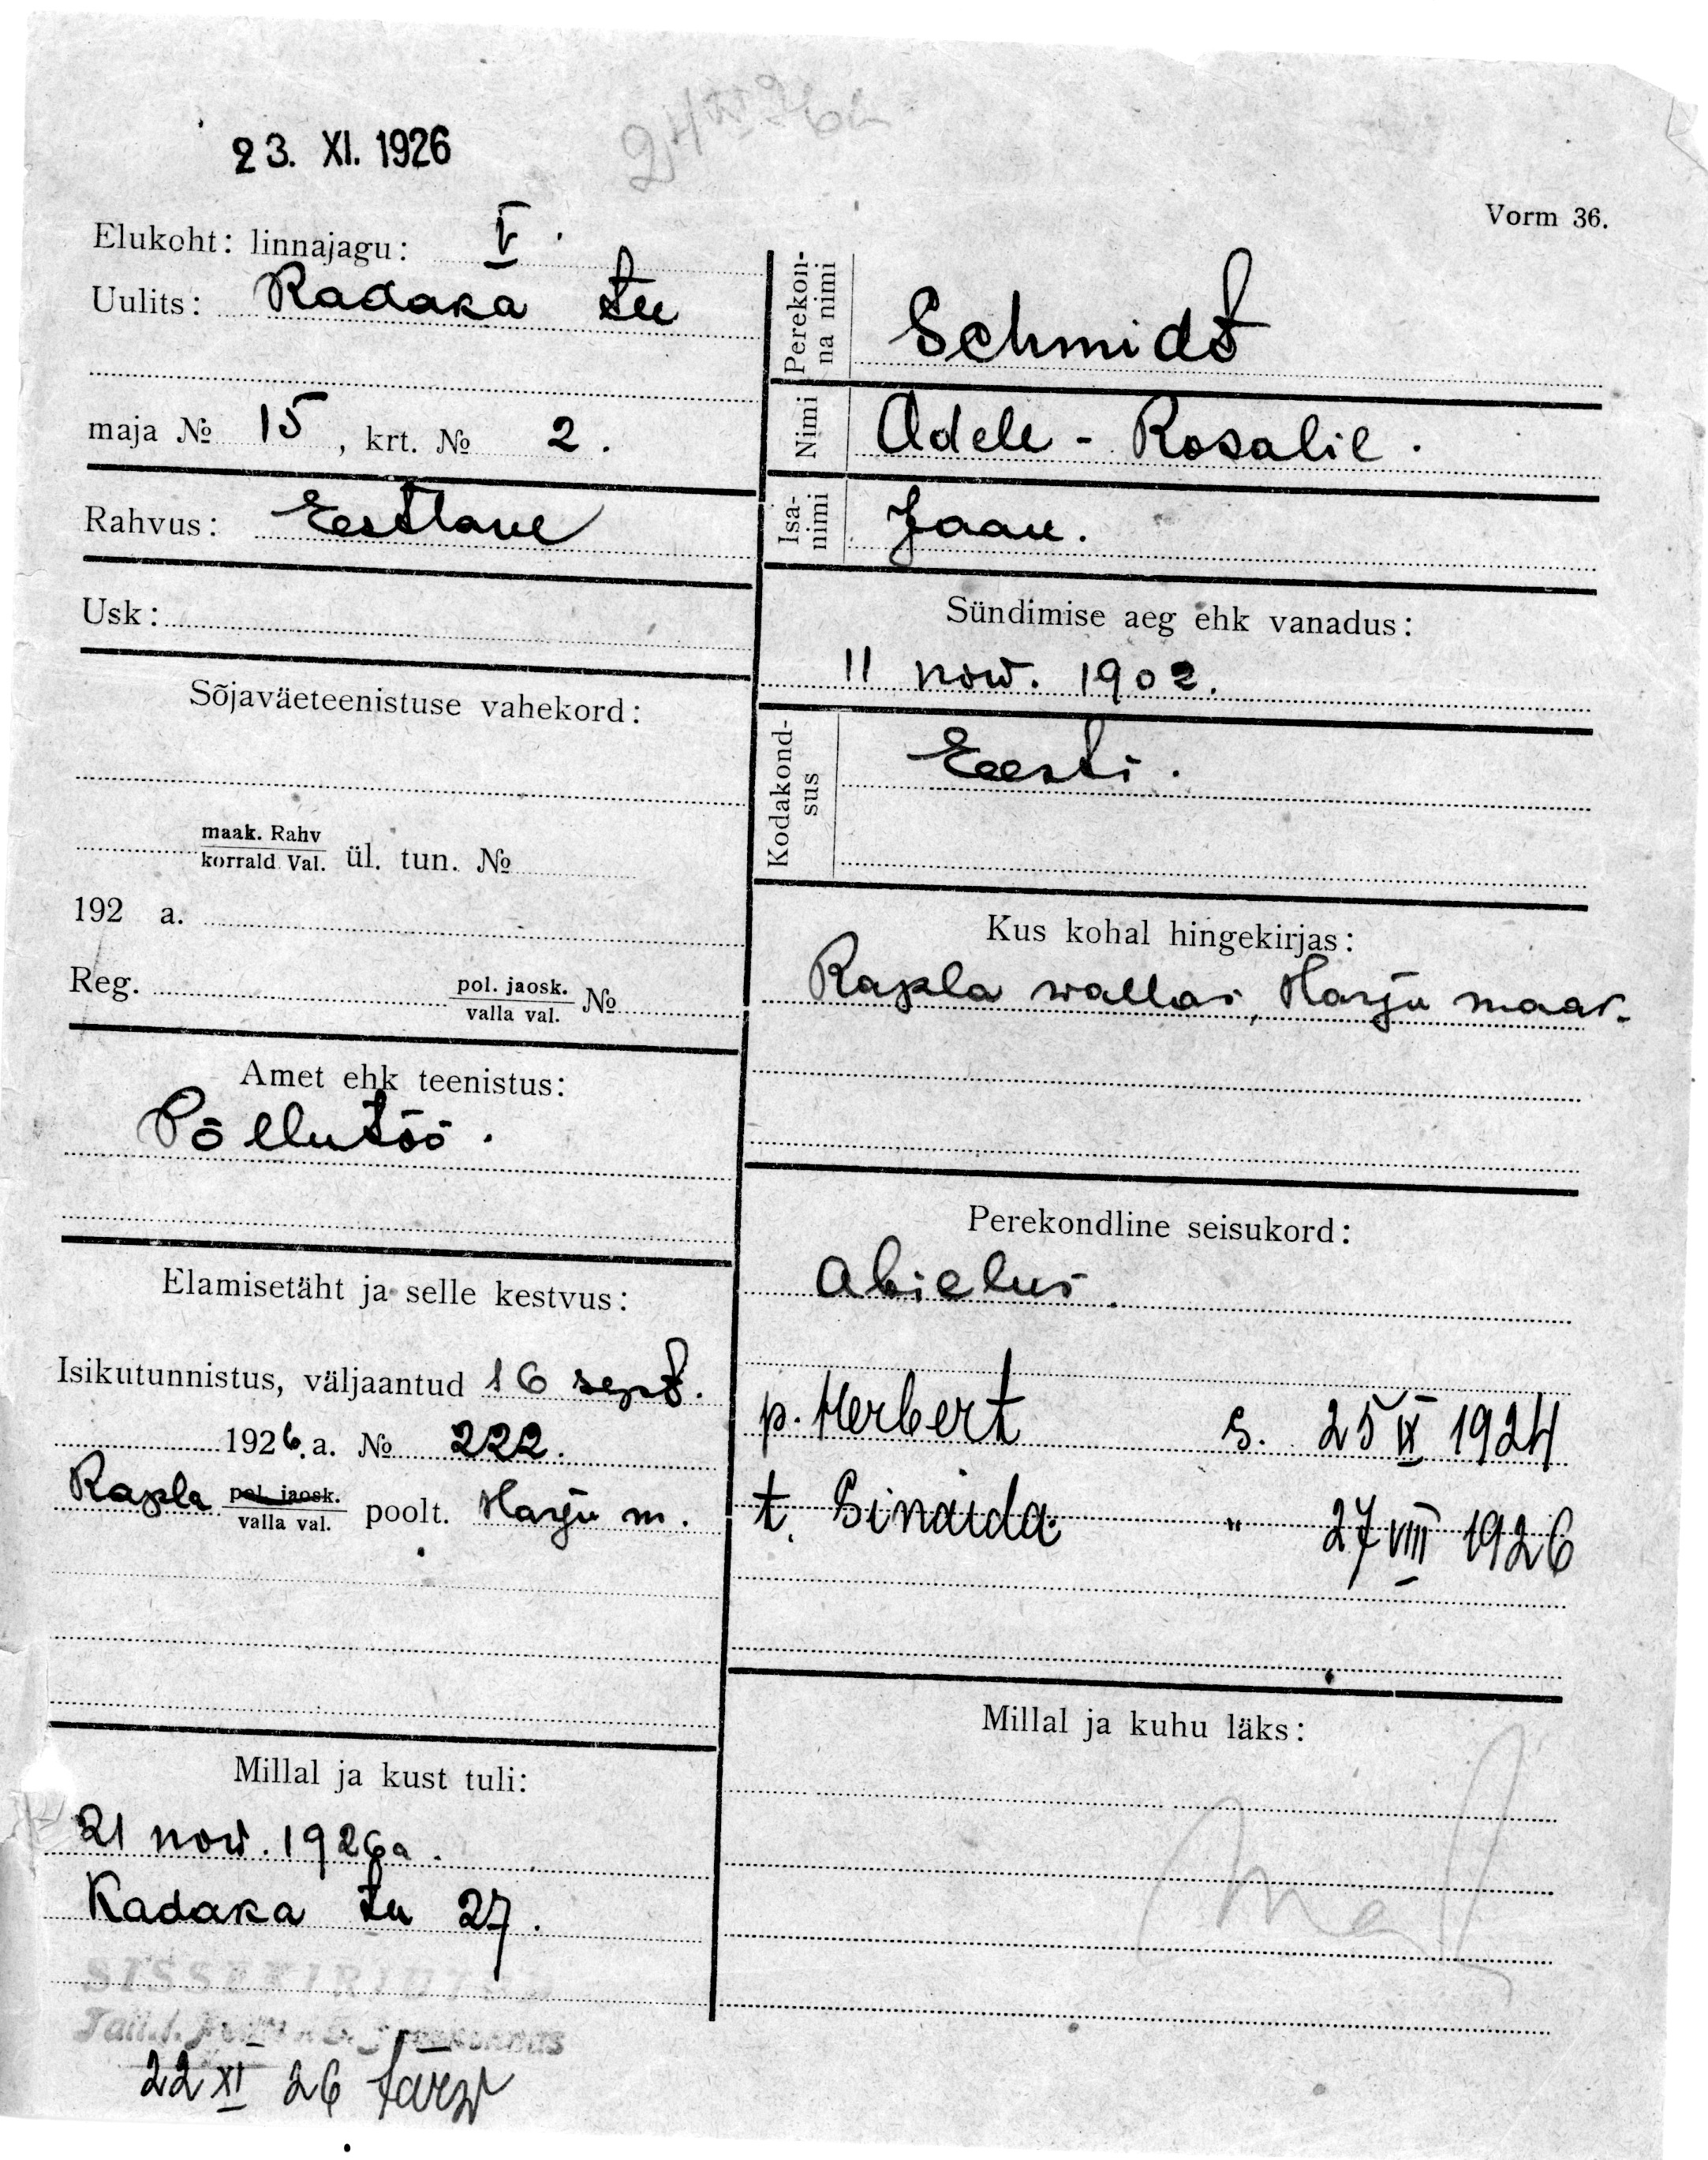 23. XI. 1926
Vorm 36.
Elukoht: linnajagu: V.
Uulits: Kadaka tee
maja № 15, krt. № 2.
Rahvus: Eestlane
Usk:
Sõjaväeteenistuse vahekord:
maak. Rahv
korrald Val. ül. tun. №
192 a.
Reg. pol. jaosk.
valla val. №
Amet ehk teenistus:
Põllutöö.
Elamisetäht ja selle kestvus:
Isikutunnistus, väljaantud 16 sept.
1926. a. № 222.
Rapla pol. jaosk.
valla val. poolt. Harju m.
Millal ja kust tuli:
21 now. 1926a.
Kadaka tee 27.
SISSEKIRJUTUD
22 XI 26
Perekon-
na nimi
Schmidt
Nimi Adele - Rosalie.
Isa-
nimi
Jaan.
Sündimise aeg ehk vanadus:
11 now. 1902.
Kodakond-
sus
Eesti.
Kus kohal hingekirjas:
Rapla wallas, Harju maak.
Perekondline seisukord:
abielus.
p. Herbert s. 25 IX 1924
t. Sinaida " 27 VIII 1926
Millal ja kuhu läks: